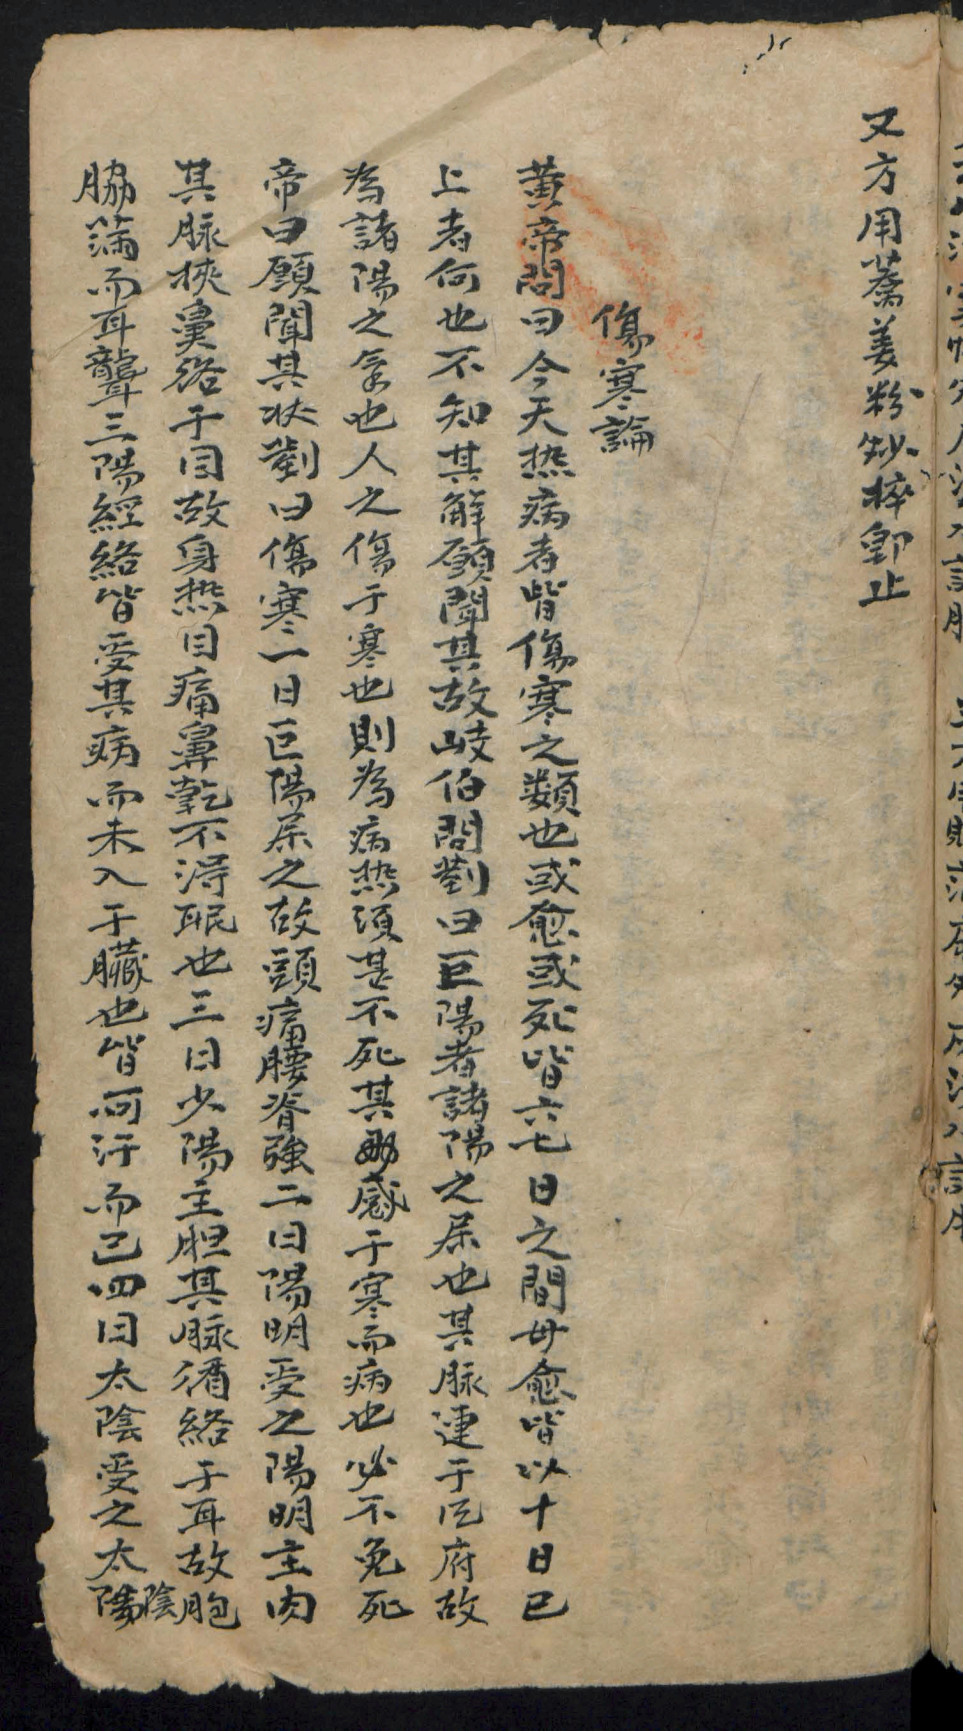 又方用蒿姜粉炒掞卽止
傷寒論
黄帝問曰今天热病者皆傷寒之類也或愈或死皆六七日之間毋愈皆以十日已
上者何也不知其解願聞其故岐伯問劄曰巨陽者諸陽之属也其脉連于府故
為諸陽之氣也人之傷于寒也則為病热湏甚不死其感于寒而病也必不免死
帝曰願聞其状劄曰傷寒一日巨陽属之故頭痛腰脊强二日陽明受之陽明主肉
其脉挾鼻絡于目故身热目痛鼻乾不淂眠也三日少陽主胆其脉循絡于耳故胞
脇滿而耳聾三陽經絡皆受其病而未入于臟也皆可汗而已四日太陰受之太陰